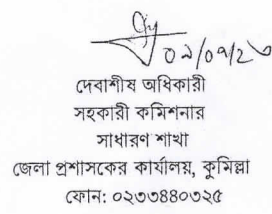 ০৯/০৭/২৩
দেবাশীষ অধিকারী
সহকারী কমিশনার
সাধারণ শাখা
জেলা প্রশাসকের কার্যালয়, কুমিল্লা
ফোন: ০২৩৩৪৪০০৩২৫